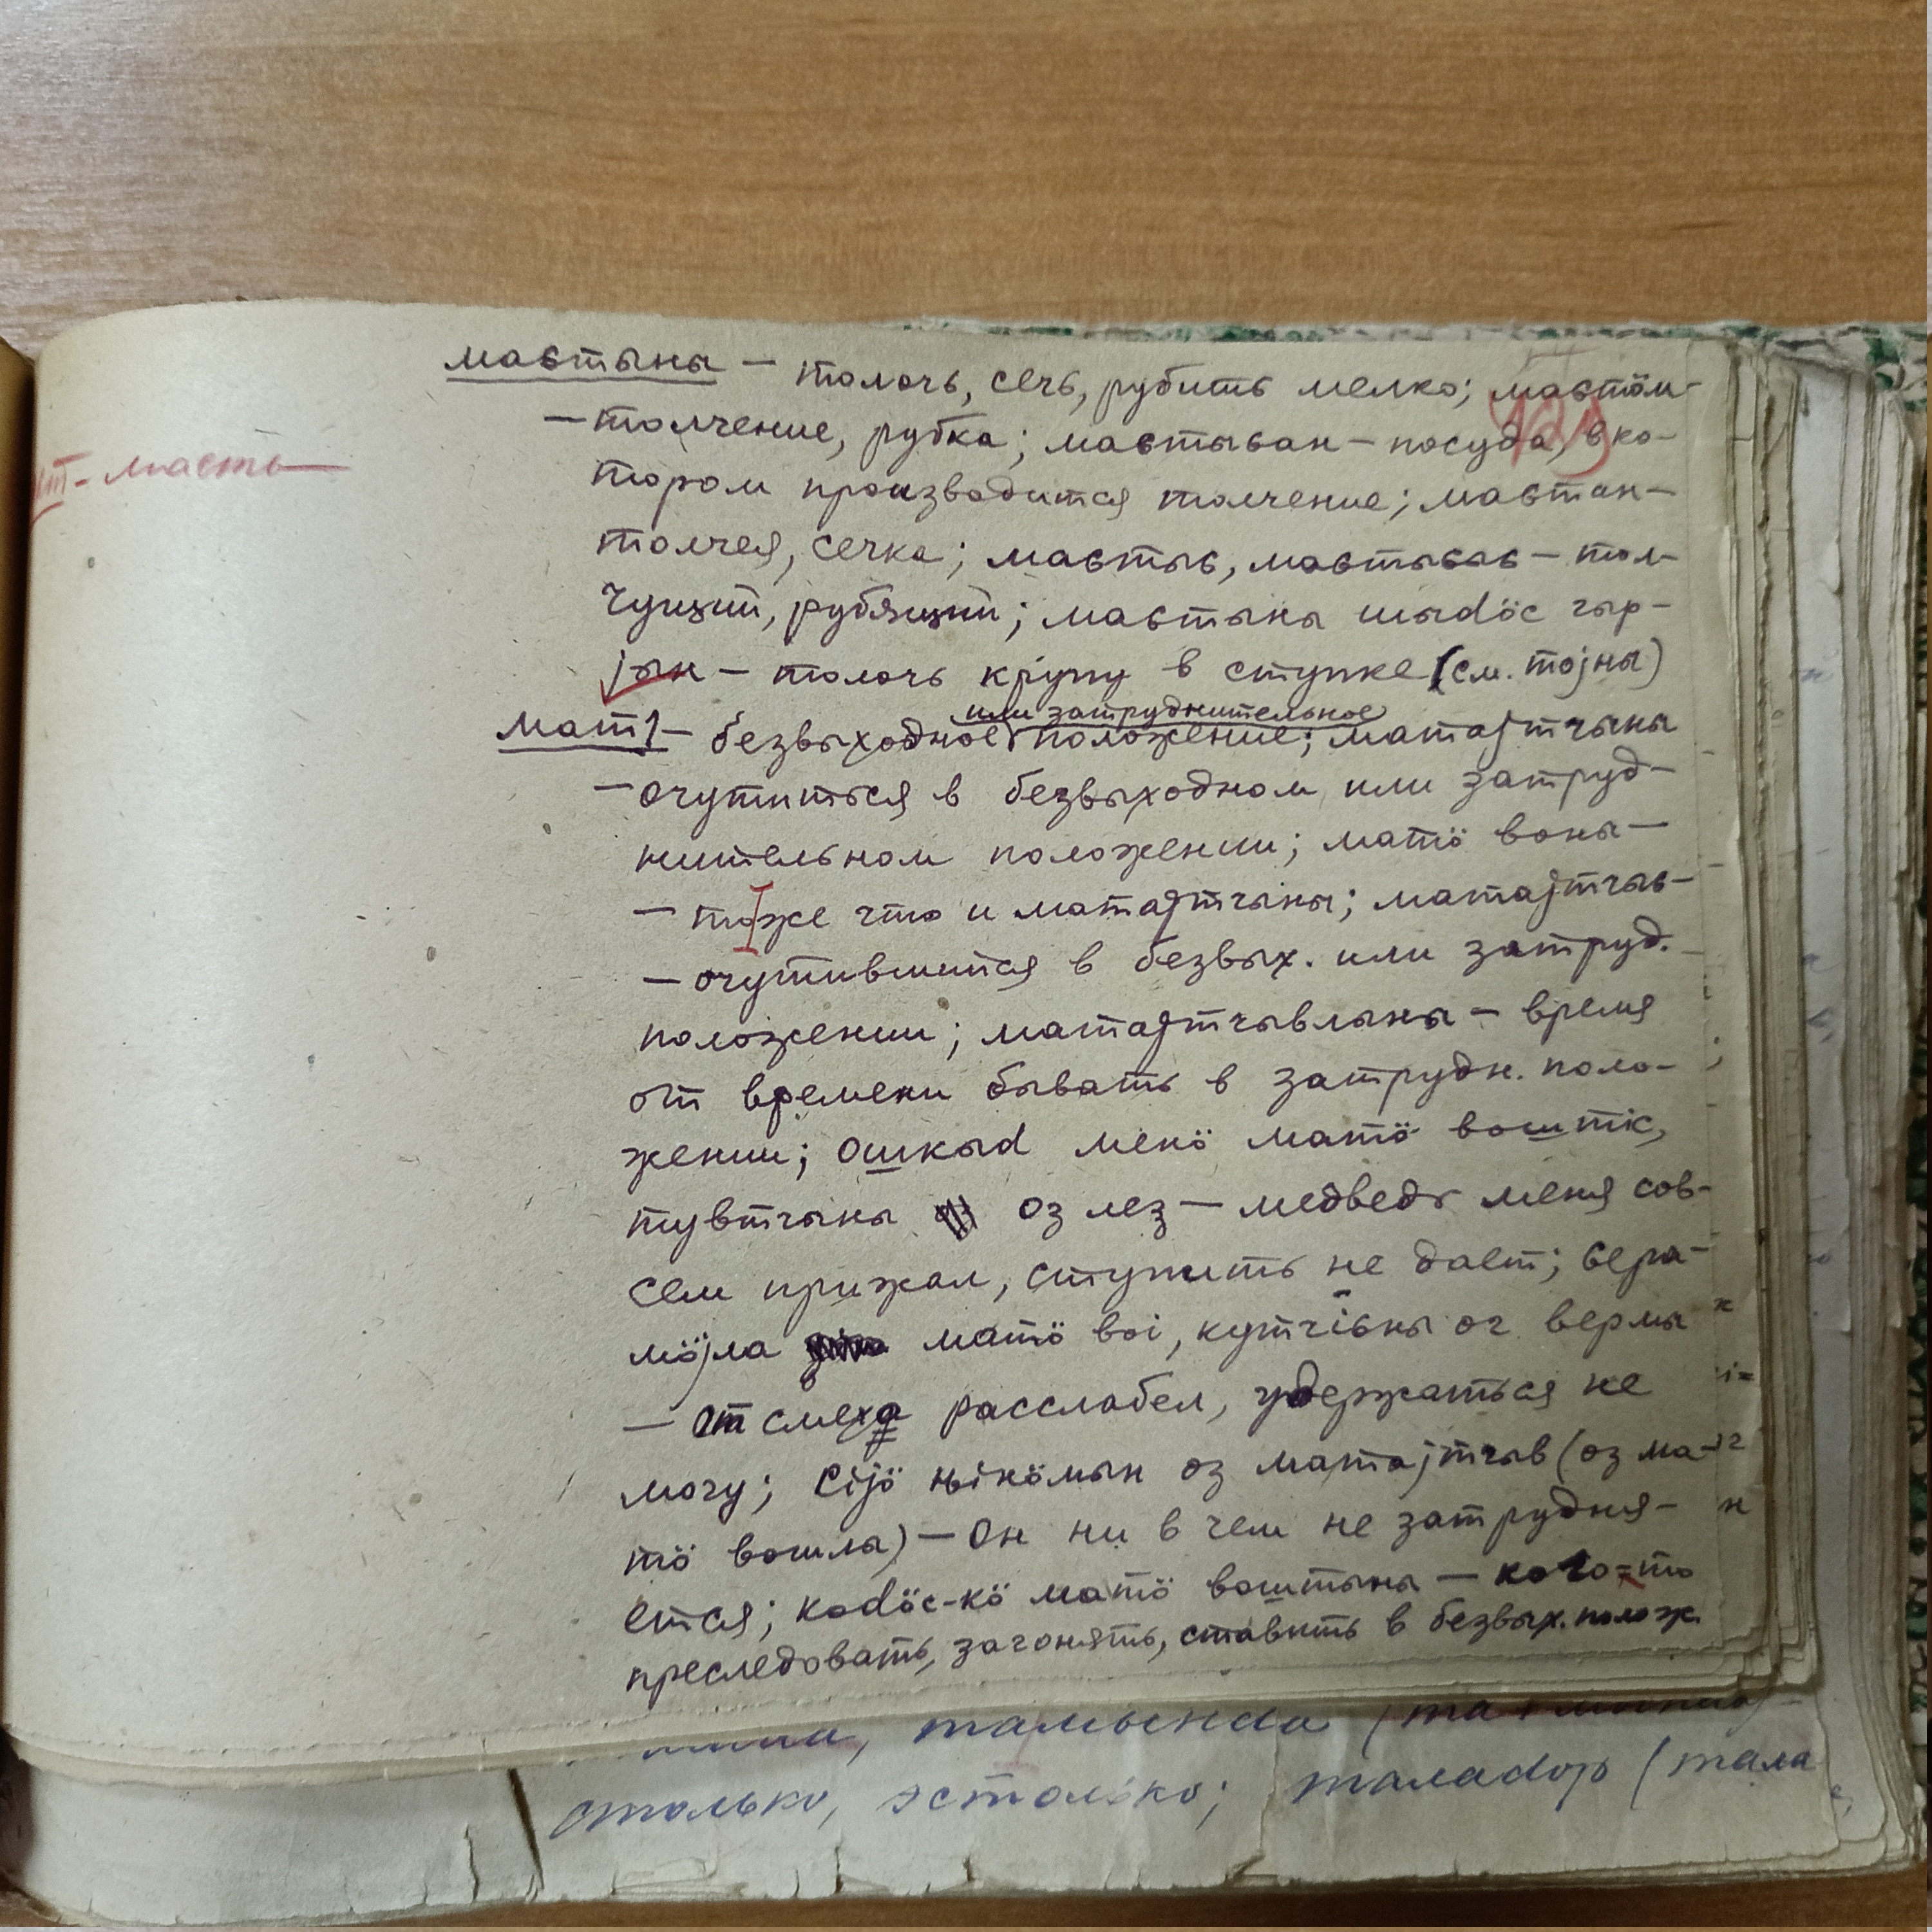 мавтыны — толочь, сечь, рубить мелко; мавтӧм-
— толчение, рубка; мавтыван — посуда, в ко-
тором производится толчение; мавтан-
толчея, сечка; мавтыв, мавтывыв — тол-
чущий, рубящий; мавтыны шыdӧс гыр-
јын — толочь крупу в ступке (см. тојны)
мат 1 — безвыходное или затруднительное положение; матајтчыны
— очутиться в безвыходном или затруд-
нительном положении; матӧ воны —
— тоже что и матајтчыны; матајтчыв-
— очутившийся в безвых. или затруд.
положении; матајтчывлыны — время
от времени бывать в затрудн. поло-
жении; ошкыd менӧ матӧ воштіс,
тувтчыны оз лез — медведь меня сов-
сем прижал, ступить не дает; вера-
мӧјла матӧ воі, кутчівны ог вермы
— от смеха расслабел, удержаться не
могу; сіјӧ ԋінӧмын оз матајтчыв (оз ма-
тӧ вошлы) — Он ни в чем не затрудня-
ется; коdӧс-кӧ матӧ воштыны — кого-то
преследовать, загонять, ставить в безвых. полож.
т - масть
129
столько, эстолько; талаdор (тала